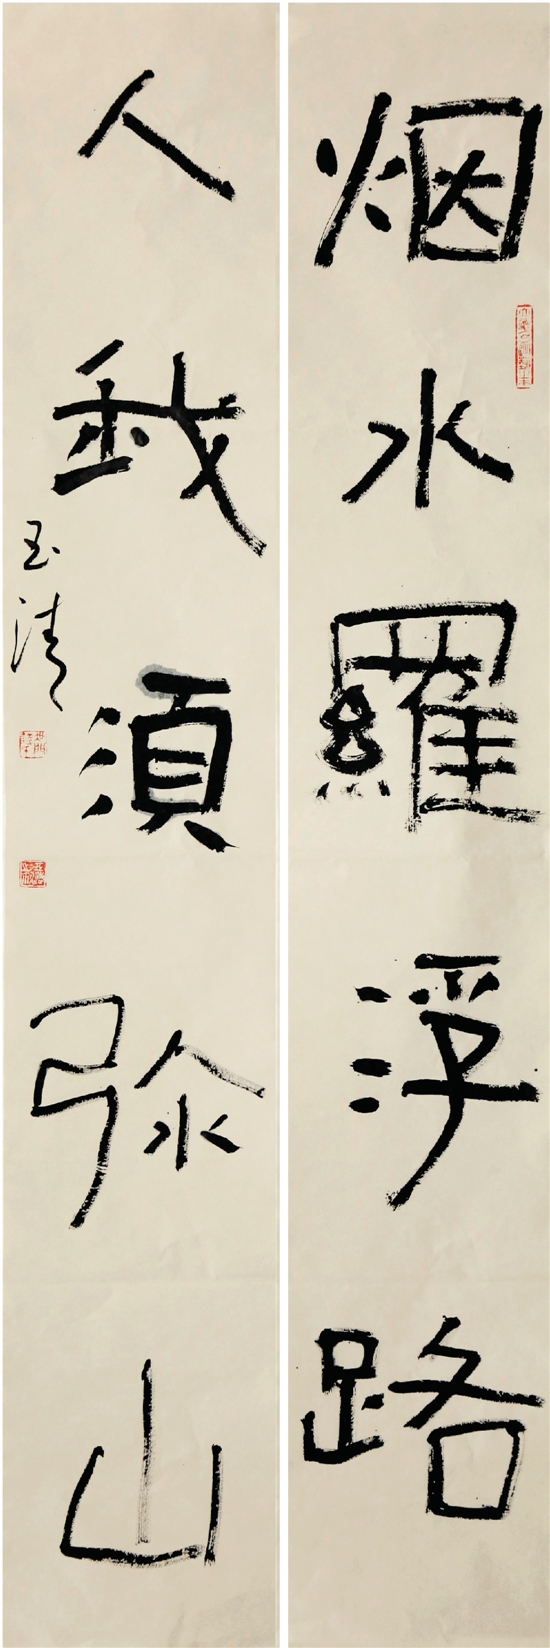 烟水羅浮路
人我須弥山
玉清